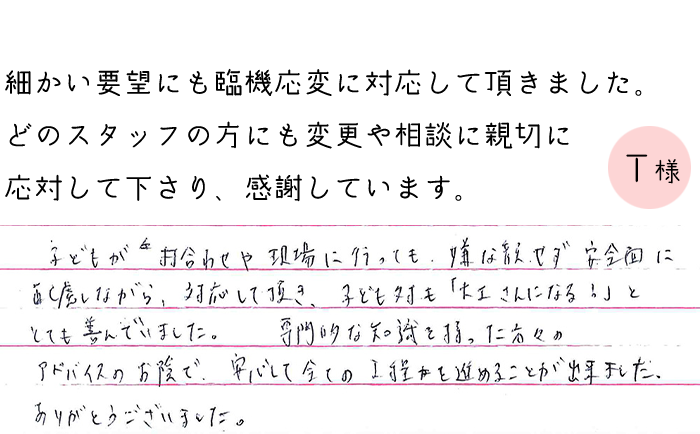 細かい要望にも臨機応変に対応して頂きました。
どのスタッフの方にも変更や相談に親切に
応対して下さり、感謝しています。
T様
子どもが 打合わせや 現場に行っても、嫌な顔せず 安全面に
配慮しながら、対応して頂き、子ども対も「大工さんになる!」と
とても喜んでいました。 専門的な知識を持った方々の
アドバイスのお陰で、安心して全ての工程を進めることが出来ました。
ありがとうございました。